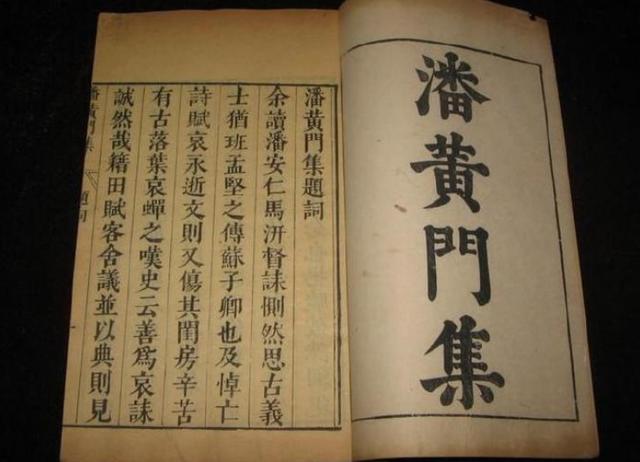 潘黃門集
潘黃門集題詞
余讀潘安仁馬汧督誄惻然思古義
士猶班孟堅之傳蘇子卿也及悼亡
詩賦哀永逝文則又傷其閨房辛苦
有古落葉哀蟬之嘆史云善爲哀誄
誠然哉籍田賦客舍議並以典則見
潘黃門集 題詞 一